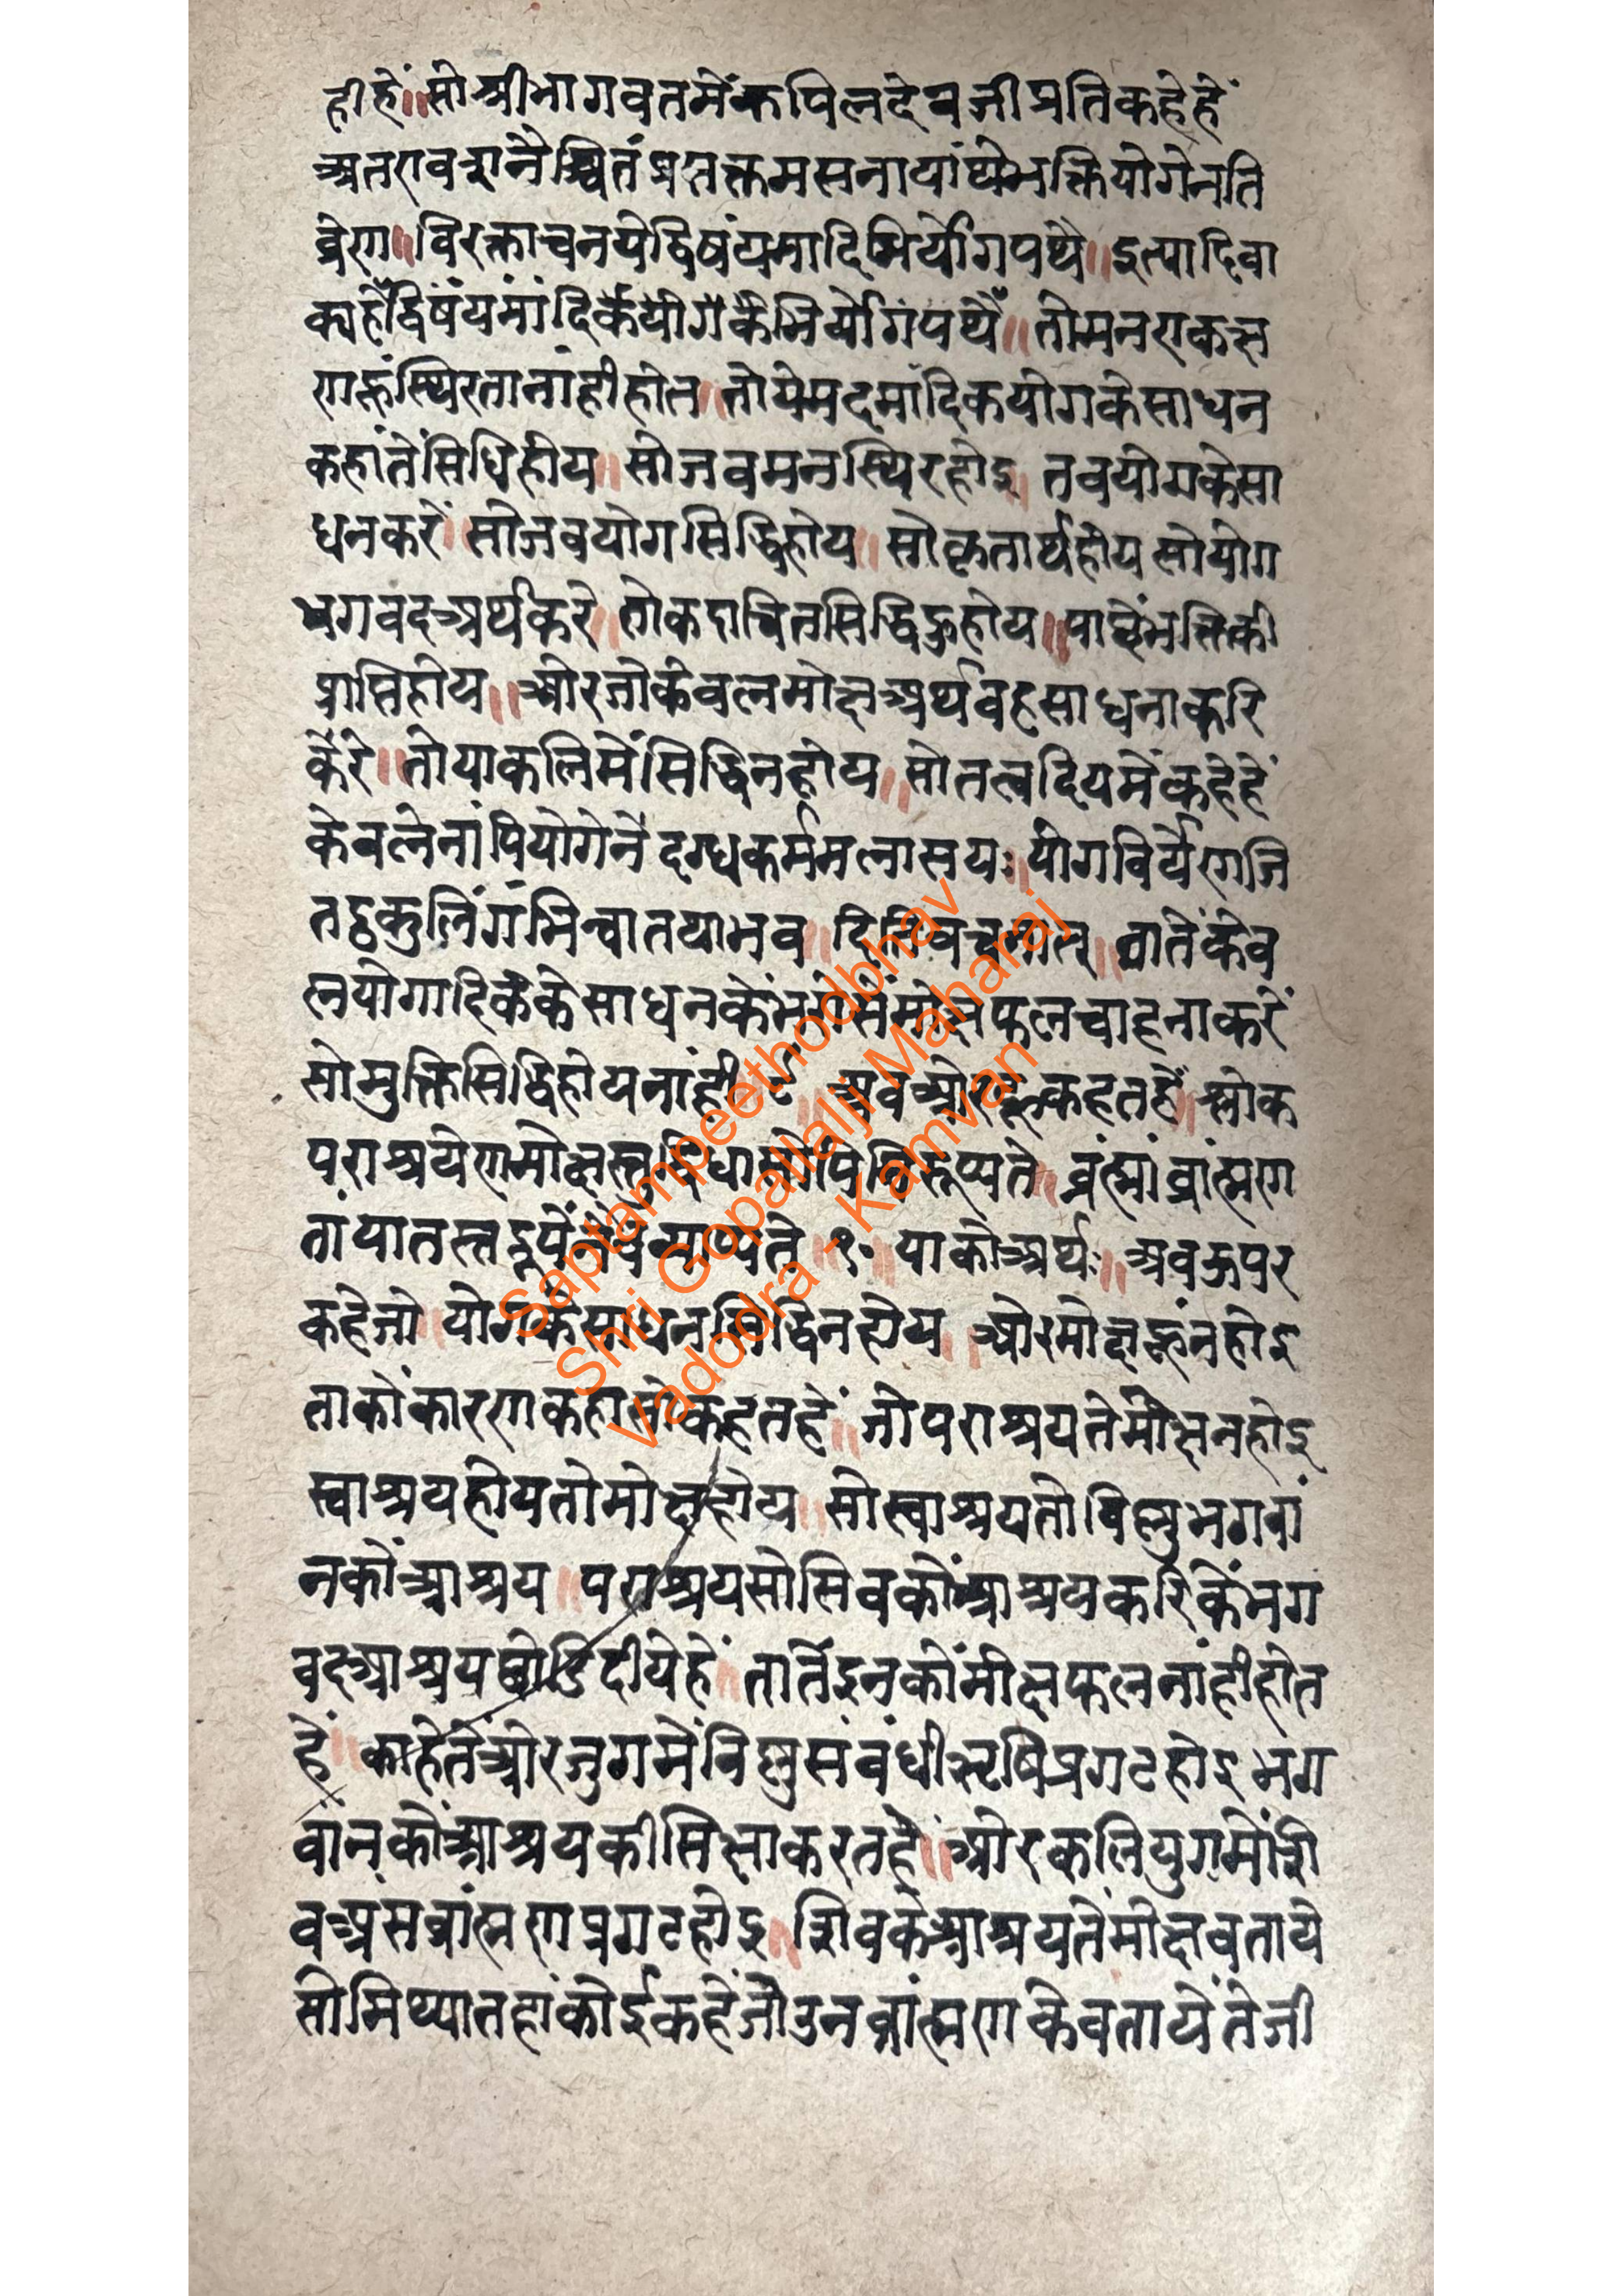 हीहें॥सोश्रीभागवतमेंकपिलदेवजीप्रतिकहेहें
अतरावशनैश्चितंप्रसक्तमसनायांपथेभक्तियोगेनति
व्रेरा॥विरक्ताचनयेद्विषंयमादिभिर्योगपथै॥इत्यादिवा
क्यहेंद्विषंयमांदिकेंयोगकेंभिर्योगिपथें॥तोमनराकक्ष
राहूंस्थिरतानांहीहोत॥तोयेमदमांदिकयोगकेसाधन
कहांतेंसिधिहोय॥सोजबमनस्थिरहोइ तबयोगकेसा
धनकरें॥सोजबयोगसिद्धिहोय॥सोकृतार्थहोयसोयोग
भगवदअर्थकरे॥तोकदाचितसिद्धिहूहोय॥पाछेंभक्तिकी
प्राप्तिहोय॥औरजोकेवलमोक्षअर्थवहसाधनाकरि
केंरे॥तोयाकलिमेंसिद्धिनहोय॥सोतत्वदियमेंकहेहें
केवलेनांपियोगेनें दग्धकर्ममलासयः॥योगविर्येराजि
तद्वकुलिंगंभित्वातथाभव॥दितिवचनात्॥तातेंकेव
लयोगादिककेसाधनकेंभरोसेंमोक्षफलचाहनाकरें
सोमुक्तिसिद्धिहोयनांहीं॥९॥अबओरहूकहतहें॥श्लोक
पराश्रयेरामोक्षस्तुद्विधासोपिनिरूप्यते॥व्रंह्मांव्रांह्मरा
तांयातस्तद्रूपेंरोवसेव्यते॥१०॥याकोअर्थः॥अबऊपर
कहेजो॥योगकेसाधनसिद्धिनहोय॥ओरमोक्षहूंनहोइ
ताकोंकारराकहासोकहतहें॥जोपराश्रयतेंमोक्षनहोइ
स्वाश्रयहोयतोमोक्षहोय॥सोस्वाश्रयतोविष्णुभगवां
नकोंआश्रय॥पराश्रयसोसिवकोंआश्रयकरिकेंभग
वदआश्रयछोडिदीयेहें॥तातेंइनकोंमोक्षफलनांहीहोत
हें॥काहेतेंओरजुगमेंविष्णुसंबंधीऋषिप्रगटहोइभग
वांनकोंआश्रयकीसिक्षाकरतहे॥ओरकलियुगमेंशि
वअंसव्रांह्मराप्रगटहोइ॥शिवकेआश्रयतेंमोक्षवताये
सोमिथ्यातहांकोईकहेंजोउनव्रांह्मराकेवतायेंतेजी
Saptampeethodbhav
Shri Gopallalji Maharaj
Vadodra - Kamvan